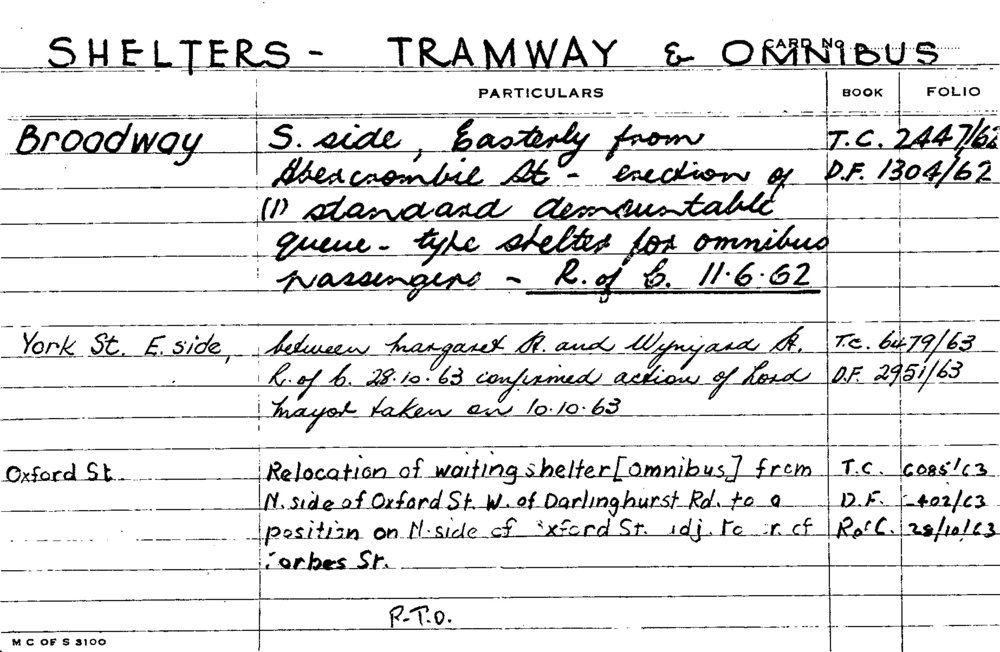 SHELTERS - TRAMWAY & OMNIBUS
CARD No
PARTICULARS BOOK FOLIO
Broadway S. side, Easterly from T.C. 2447/62
Abercrombie St - erection of D.F. 1304/62
(1) standard demountable
queue-type shelter for omnibus
passengers - R. of C. 11.6.62
York St. E. side, between Margaret St. and Wynyard St. T.C. 6479/63
R. of C. 28.10.63 confirmed action of Lord D.F. 2951/63
Mayor taken on 10.10.63
Oxford St. Relocation of waiting shelter [omnibus] from T.C. 6085/63
N. side of Oxford St. W. of Darlinghurst Rd. to a D.F. 402/63
position on N. side of Oxford St. adj. to of R of C. 28/10/63
Forbes St.
P.T.O.
M C OF S 3100